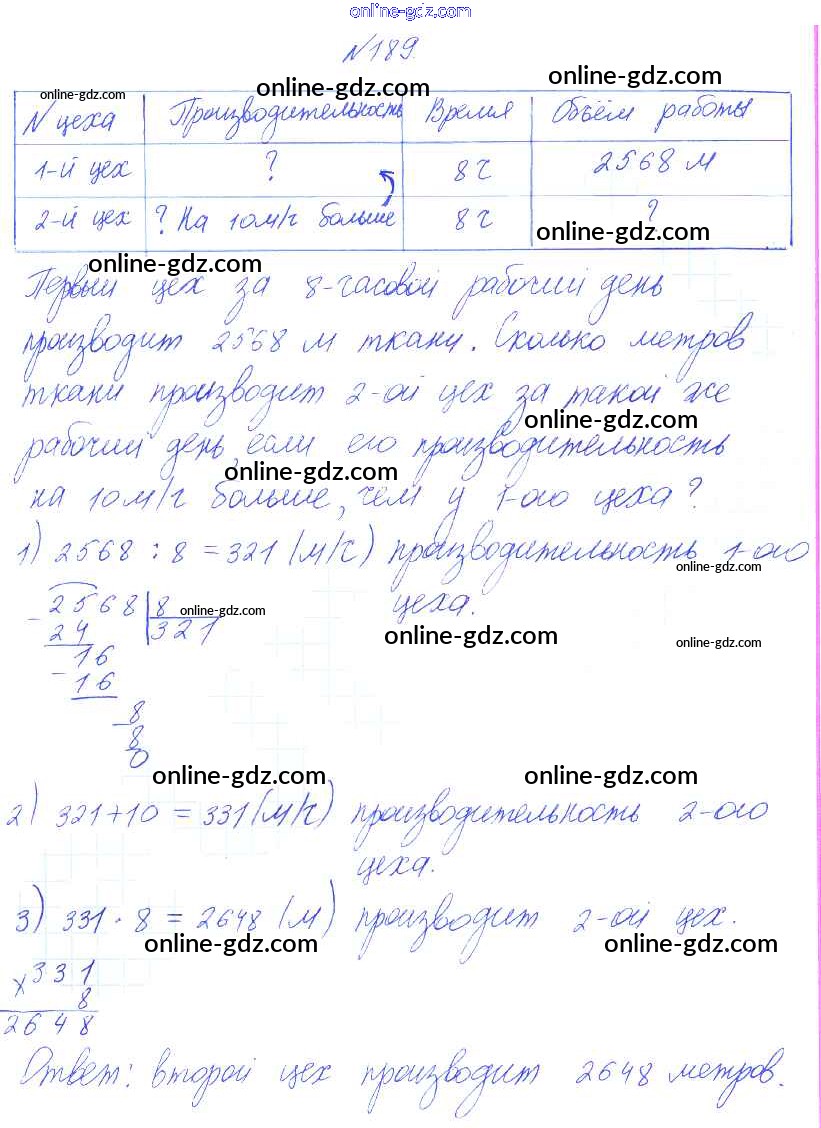 online-gdz.com
№189.
online-gdz.com online-gdz.com online-gdz.com
N цеха Производительность Время Объём работы
1-й цех ? 8 ч 2568 м
2-й цех ? На 10 м/ч больше 8 ч ?
online-gdz.com
online-gdz.com
Первый цех за 8-часовой рабочий день
производит 2568 м ткани. Сколько метров
ткани производит 2-ой цех за такой же
online-gdz.com
рабочий день, если его производительность
online-gdz.com
на 10 м/ч больше, чем у 1-ого цеха?
1) 2568 : 8 = 321 (м/ч) производительность 1-ого
online-gdz.com
цеха.
2568 8 online-gdz.com
24 321
online-gdz.com online-gdz.com
16
16
8
8
0
online-gdz.com online-gdz.com
2) 321+10 = 331 (м/ч) производительность 2-ого
цеха.
3) 331 · 8 = 2648 (м) производит 2-ой цех.
online-gdz.com online-gdz.com
×331
8
2648
Ответ: второй цех производит 2648 метров.